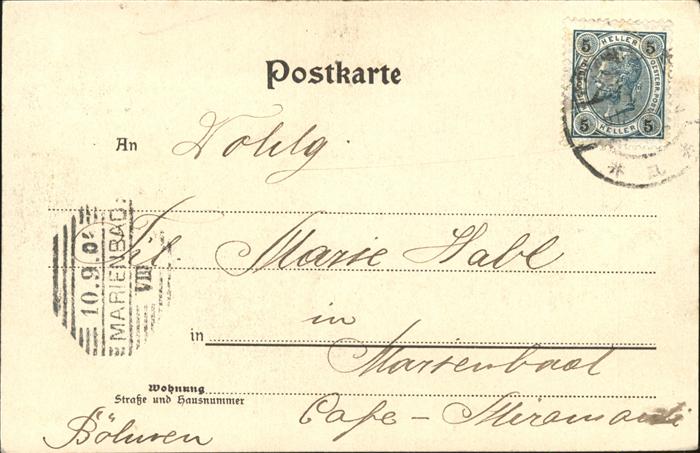 Postkarte
5 HELLER 5
OESTERR. POST
5 HELLER 5
An Wohlg.
Frl Marie Habl
in
in Marienbad
Wohnung
Straße und Hausnummer
Cafe - Miramonti
Böhmen
10.9.0
MARIENBAD
VIII